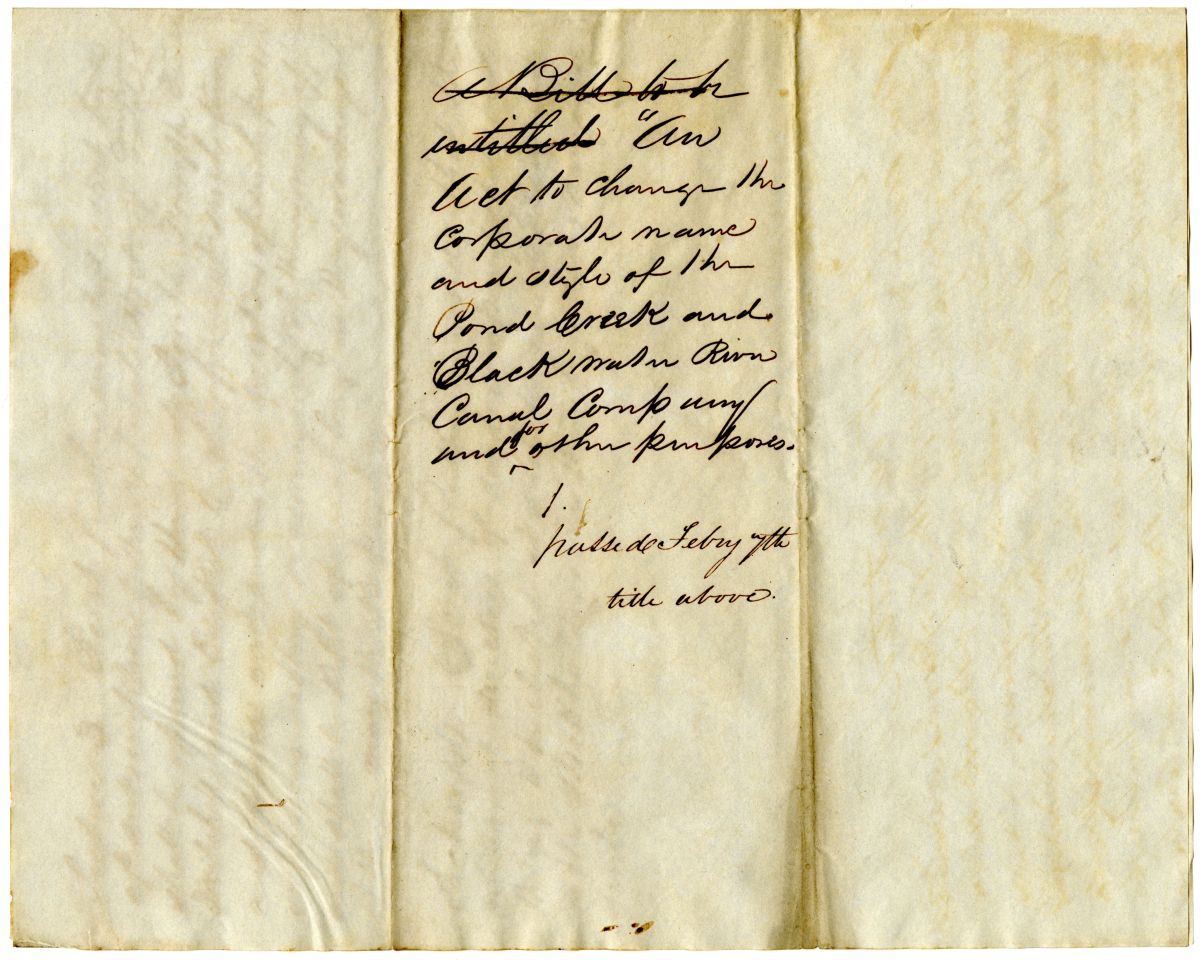 A Bill to be
entitled "An
Act to change the
corporate name
and style of the
Pond Creek and
Black water River
Canal Company
and for other purposes.
1.
passed Febry 7th
title above.